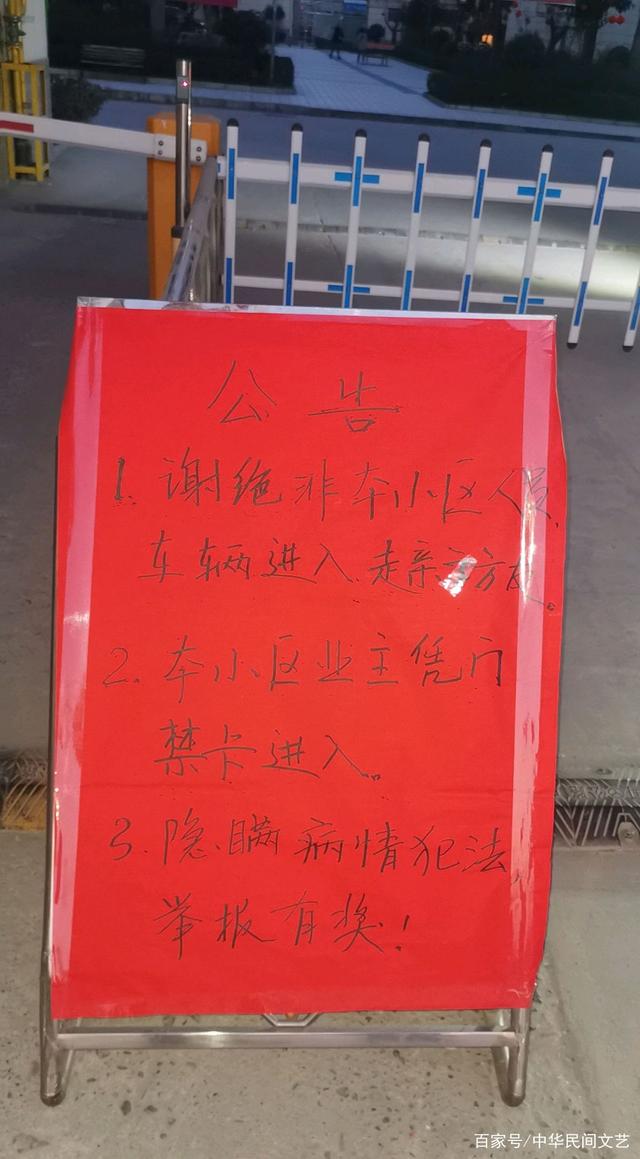 公告
1. 谢绝非本小区人员、
车辆进入走亲访友。
2. 本小区业主凭门
禁卡进入。
3. 隐瞒病情犯法,
举报有奖!
百家号/中华民间文艺